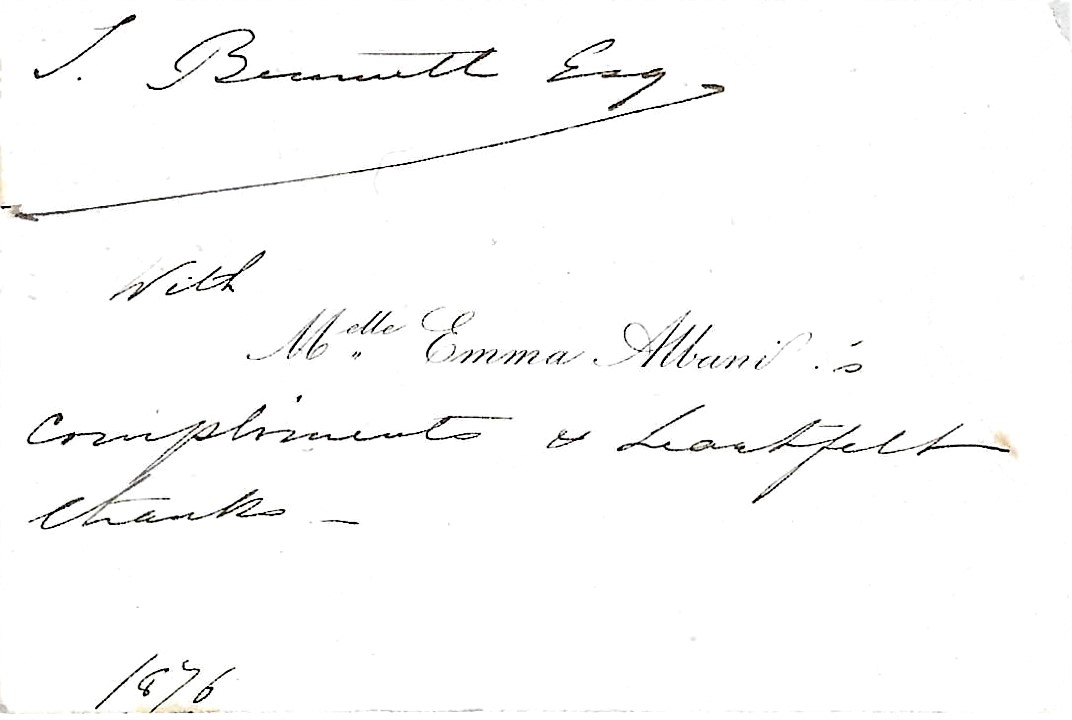 J. Bennett Esq
With
Melle Emma Albani 's
compliments & heartfelt
thanks –
1876